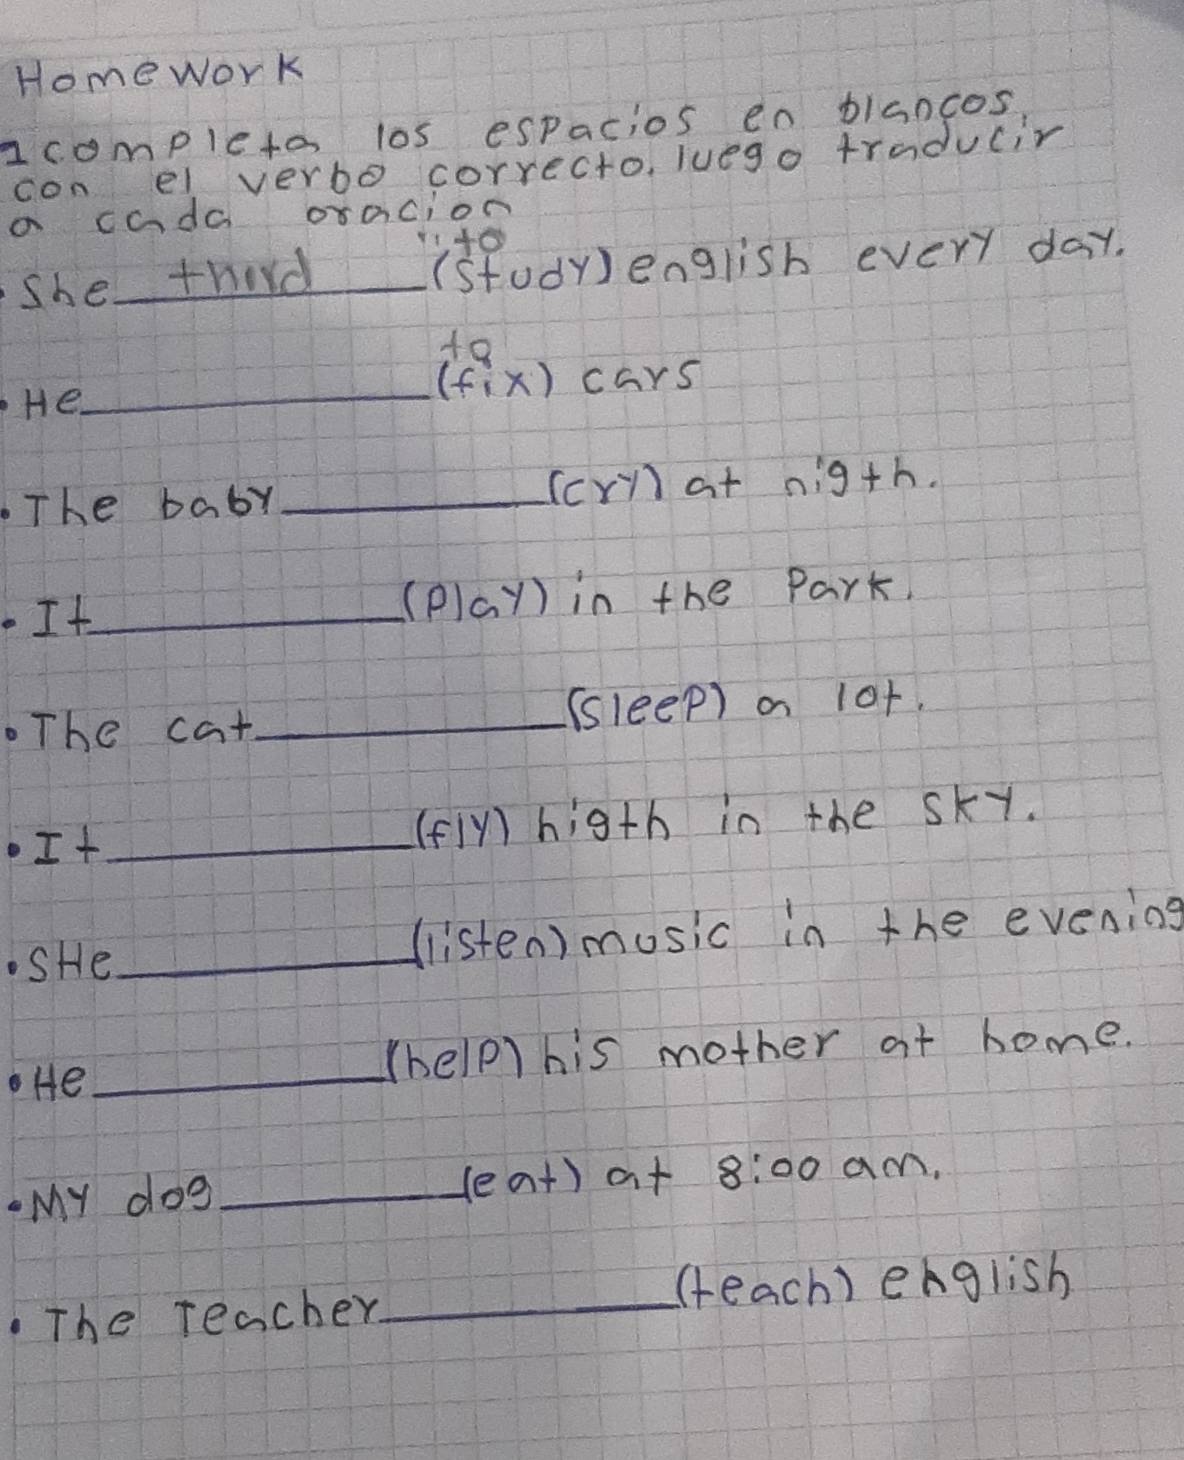 Homework
1 completa los espacios en blancos.
con el verbo correcto. luego traducir
a cada oracion
to
She third (study) english every day.
to
• He (fix) cars
• The baby (cry) at nigth.
• It (play) in the Park.
• The cat (sleep) a lot.
• It (fly) higth in the sky.
• SHe (listen) music in the evening
• He (help) his mother at home.
• My dog (eat) at 8:00 am.
• The Teacher (teach) english